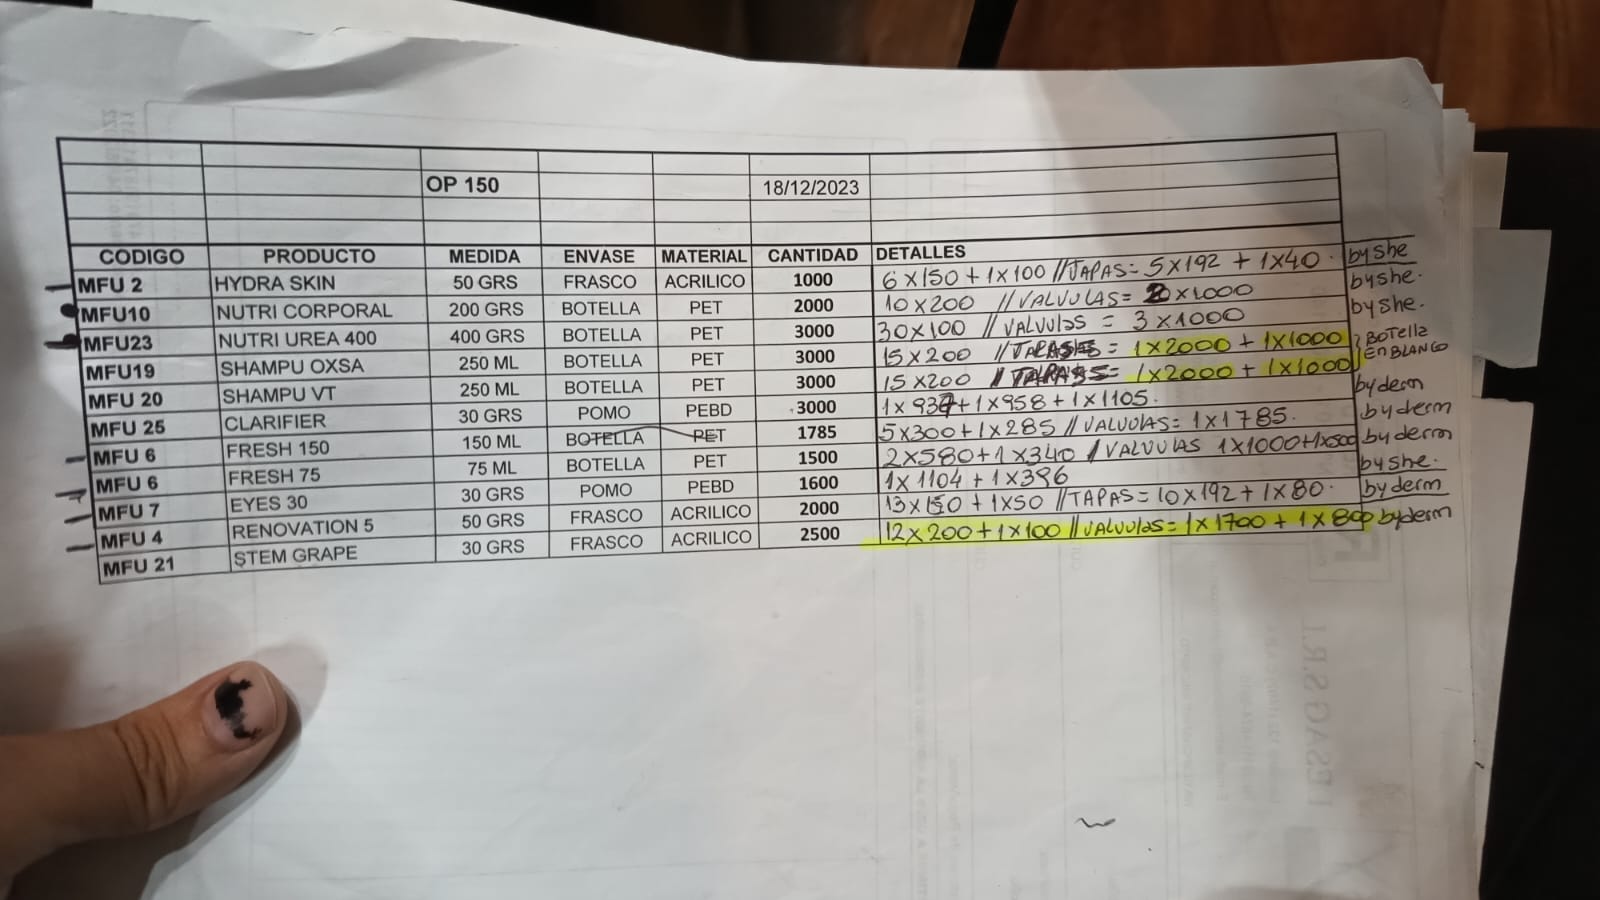 OP 150 18/12/2023
CODIGO PRODUCTO MEDIDA ENVASE MATERIAL CANTIDAD DETALLES
MFU 2 HYDRA SKIN 50 GRS FRASCO ACRILICO 1000 6X150 + 1X100 // TAPAS= 5X192 + 1X40. byshe
MFU10 NUTRI CORPORAL 200 GRS BOTELLA PET 2000 10X200 // VALVULAS= 2X1000 byshe.
MFU23 NUTRI UREA 400 400 GRS BOTELLA PET 3000 30X100 // VALVULAS = 3X1000 byshe.
MFU19 SHAMPU OXSA 250 ML BOTELLA PET 3000 15X200 // TAPAS = 1X2000 + 1X1000 BOTella
MFU 20 SHAMPU VT 250 ML BOTELLA PET 3000 15X200 // TAPAS= 1X2000 + 1X1000 En BLANCO
MFU 25 CLARIFIER 30 GRS POMO PEBD 3000 1X937+1X958+1X1105. byderm
MFU 6 FRESH 150 150 ML BOTELLA PET 1785 5X300+1X285 // VALVULAS= 1X1785. byderm
MFU 6 FRESH 75 75 ML BOTELLA PET 1500 2X580+1X340 // VALVULAS 1X1000+1X500 byderm
MFU 7 EYES 30 30 GRS POMO PEBD 1600 1X1104 + 1X396 byshe.
MFU 4 RENOVATION 5 50 GRS FRASCO ACRILICO 2000 13X150 + 1X50 // TAPAS= 10X192 + 1X80. byderm
MFU 21 STEM GRAPE 30 GRS FRASCO ACRILICO 2500 12X200+1X100 // VALVULAS= 1X1700 + 1X800 byderm